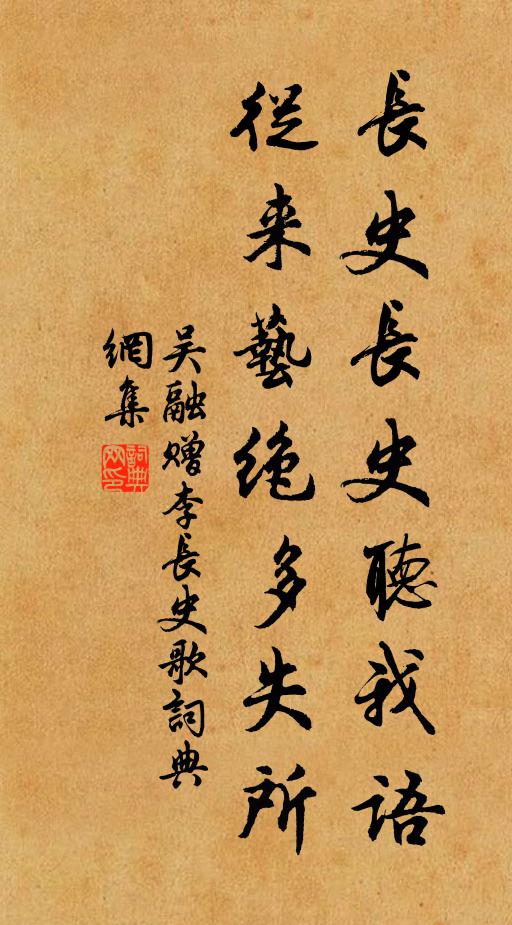 長史長史聽我語
從来藝绝多失所
吴融赠李長史歌詞典
網集
詞典
网印